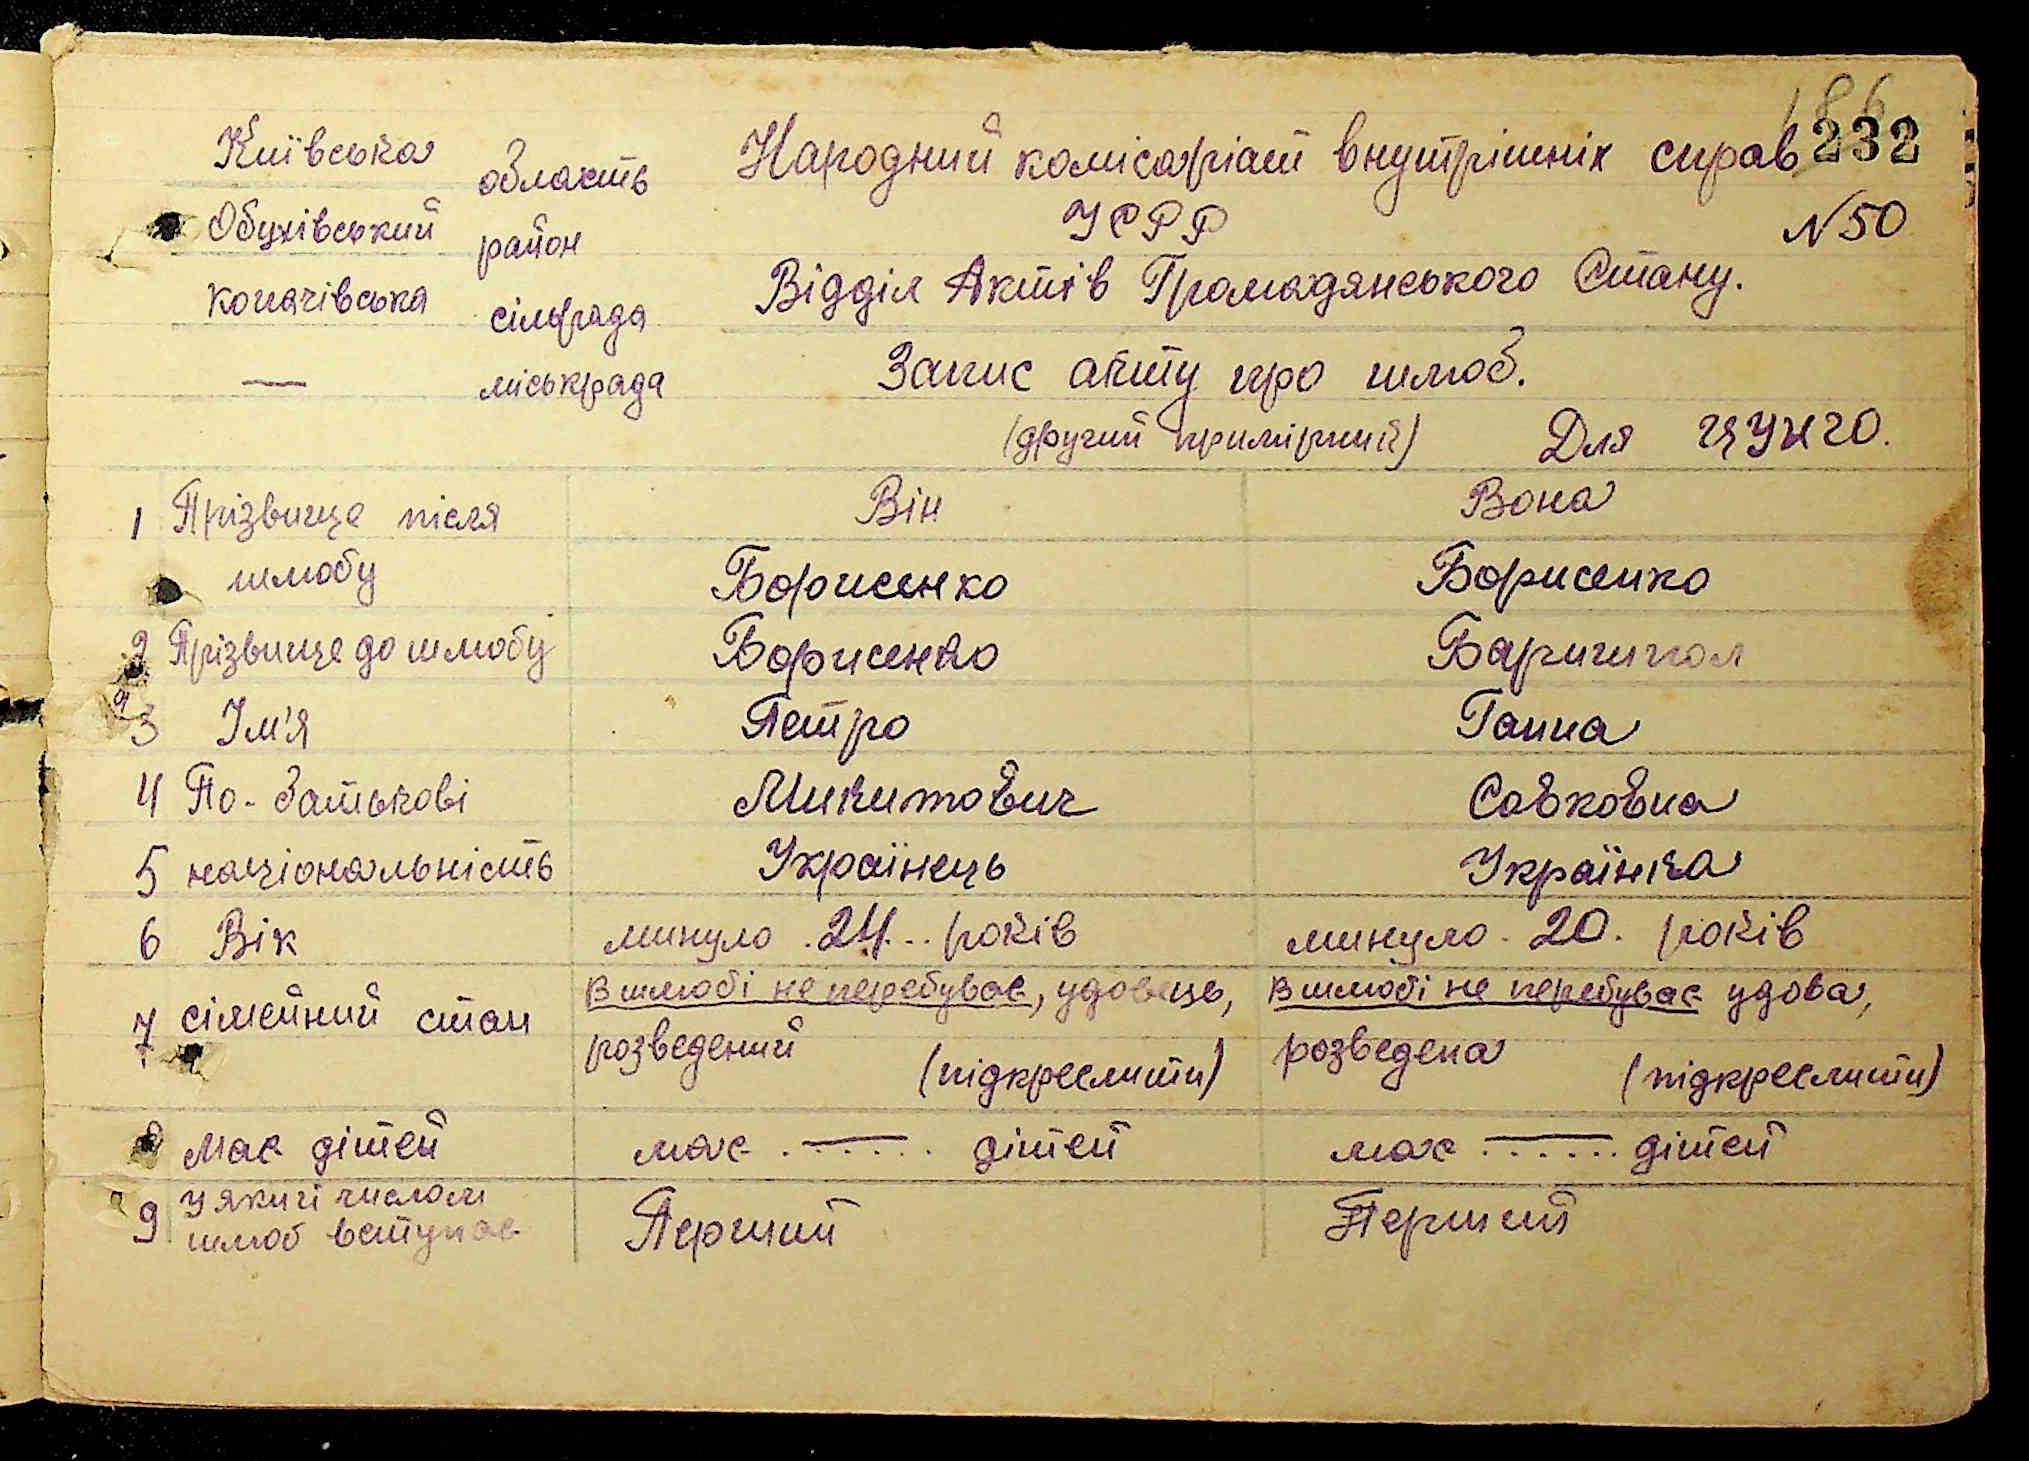 186
232
Київська область
Обухівський район
Копачівська сільрада
— міськрада
Народний комісаріат внутрішніх справ
УСРР
N 50
Відділ Актів Громадянського Стану.
Запис акту про шлюб.
(другий примірний) Для ЦУНГО.
Він Вона
1 Прізвище після шлюбу Борисенко Борисенко
2 Прізвище до шлюбу Борисенко Баришпол
3 Ім'я Петро Ганна
4 По-батькові Микитович Савковна
5 національність Українець Українка
6 Вік минуло 24 років минуло 20. років
7 сімейний стан В шлюбі не перебуває, удовець, В шлюбі не перебуває удова,
розведений (підкреслити) розведена (підкреслити)
8 Має дітей має — дітей має — дітей
9 У який числом
шлюб вступає Перший Перший